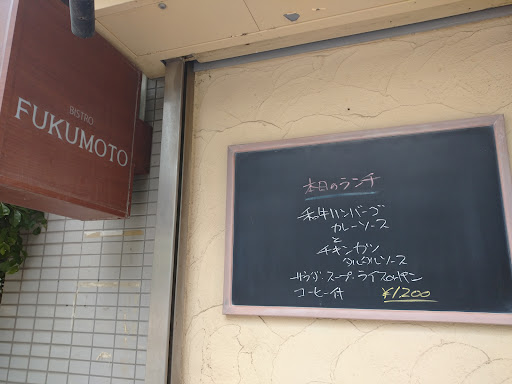 BISTRO
FUKUMOTO
本日のランチ
和牛ハンバーグ
カレーソース
と
チキンカツ
タルタルソース
サラダ・スープ・ライスorパン
コーヒー付 ¥1,200